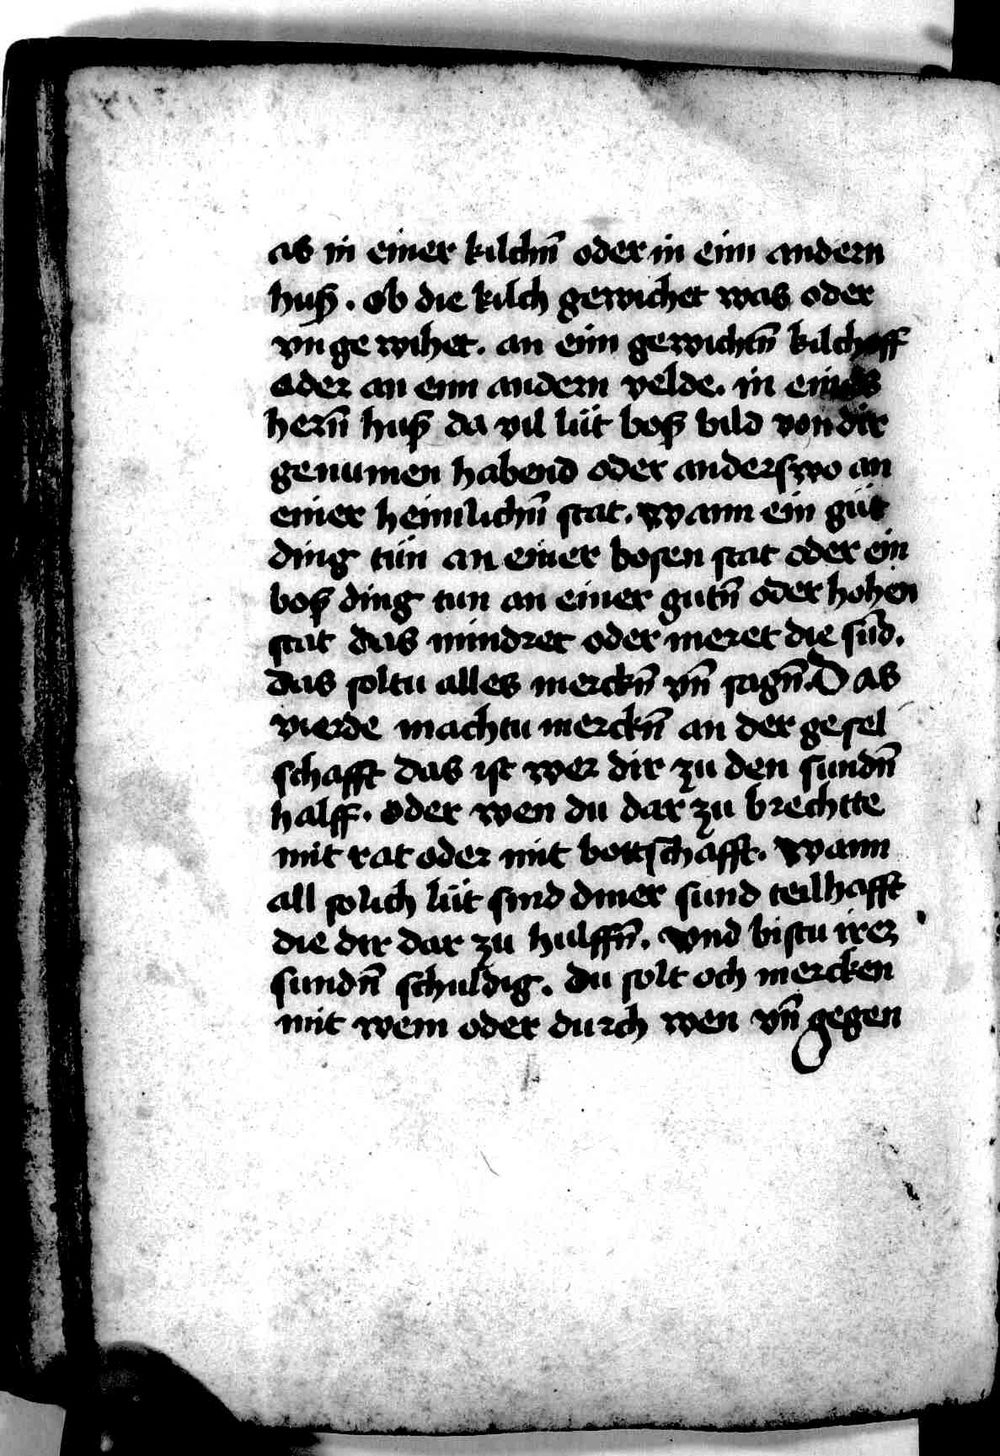 as in einer kilchn̄ oder in eim andern
huß. ob die kilch gewichet was oder
vngewihet. an eim gewichtn̄ kilchoff
oder an eim andern velde. in eines
hern̄ huß da vil lüt boß bild von dir
genumen habend oder anderswo an
einer heimlichn̄ stat. wann ein güt
ding tün an einer bosen stat oder ein
boß ding tun an einer gutn̄ oder hohen
stat das mindret oder meret die sūd.
das soltu alles merckn̄ vn̄ sagn̄. Das
vierde machtu merckn̄ an der gesel
schafft das ist wer dir zu den sundn̄
halff. oder wen du dar zu brechtte
mit rat oder mit bottschafft. wann
all solich lüt sind diner sund teilhafft
die dir dar zu hulffn̄. vnd bistu irer
sundn̄ schuldig. du solt och mercken
mit wem oder durch wen vn̄ gegen